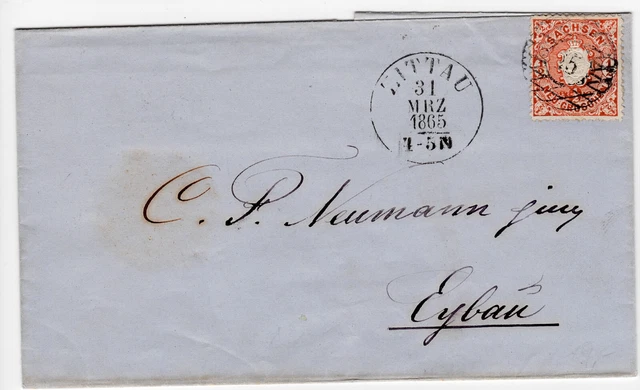 SACHSEN
5
NEUGROSCHEN
ZITTAU
31
MRZ
1865
4-5N
C. F. Neumann jun
Eybau